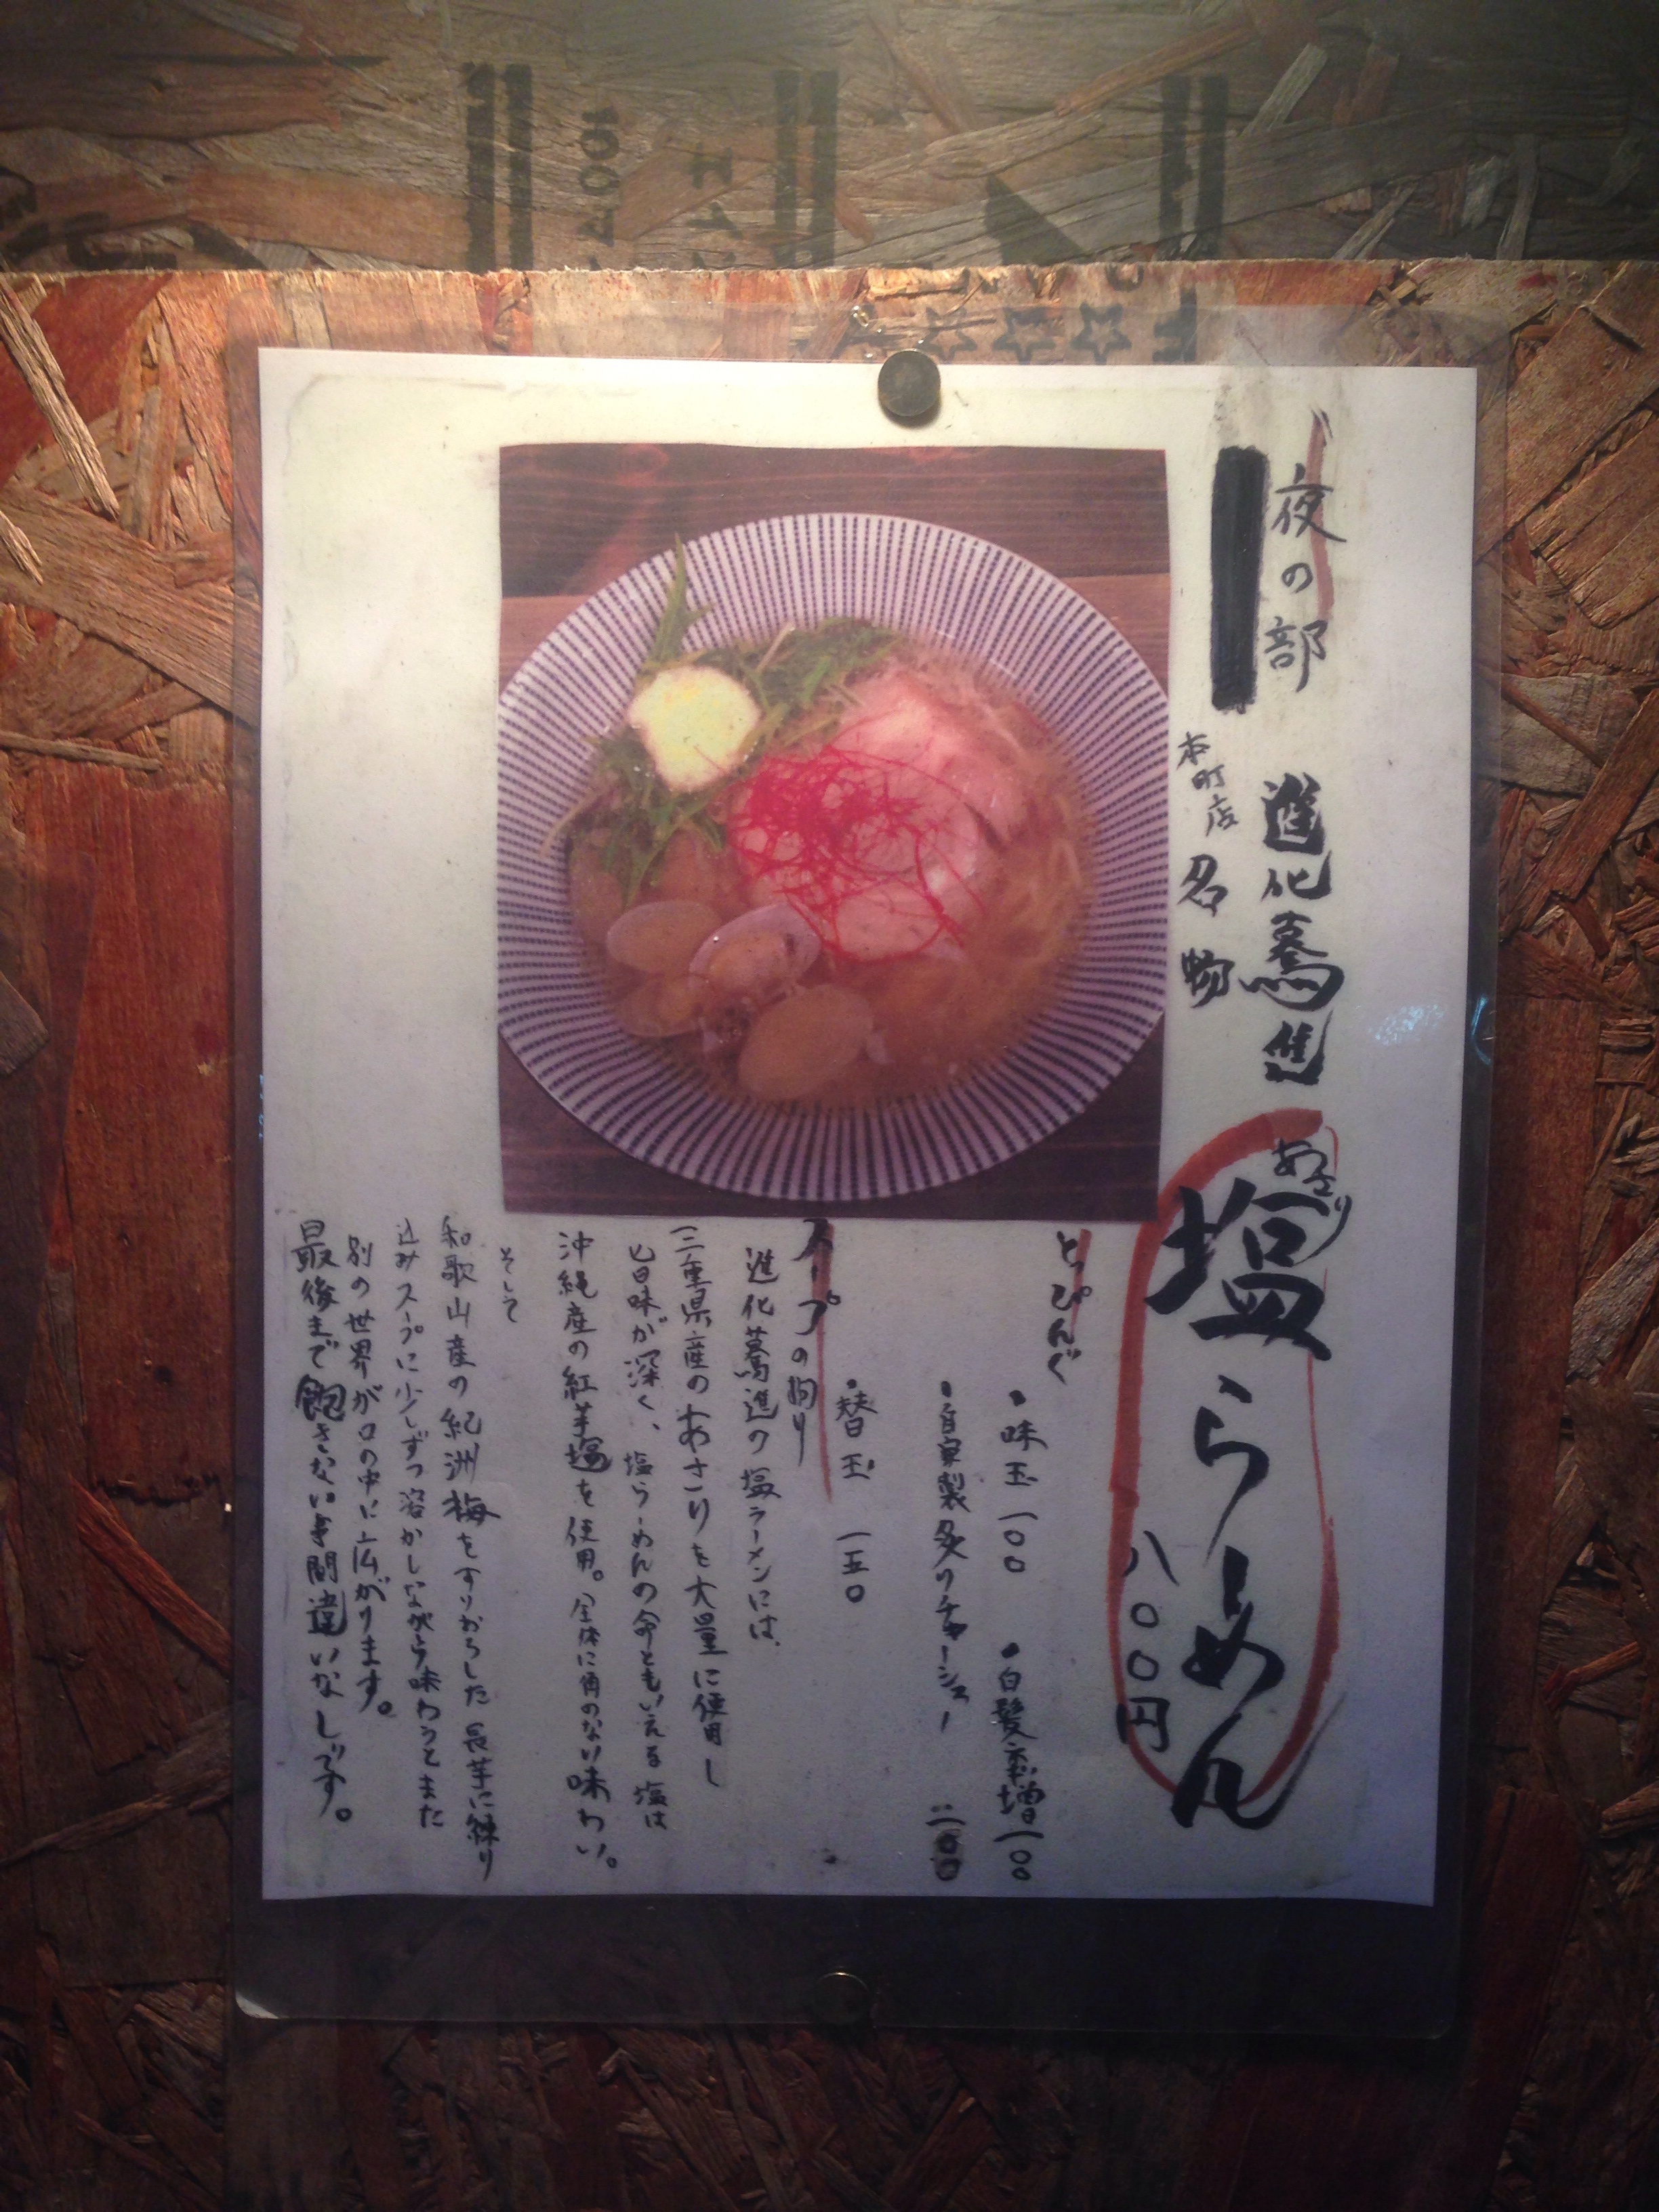 夜の部
進化蔦進
本町店 名物
あさり
塩らーめん
八〇〇円
とっぴんぐ
・味玉 一〇〇 ・白髪ネギ増 一〇〇
・自家製炙りチャーシュー 二〇〇
・替玉 一五〇
スープの拘り
進化蔦進の塩ラーメンには、
三重県産のあさりを大量に使用し
旨味が深く、塩らーめんの命ともいえる塩は
沖縄産の紅芋塩を使用。全体に角のない味わい。
そして
和歌山産の紀洲梅をすりおろした長芋に練り
込みスープに少しずつ溶かしながら味わうとまた
別の世界が口の中に広がります。
最後まで飽きない事間違いなしです。